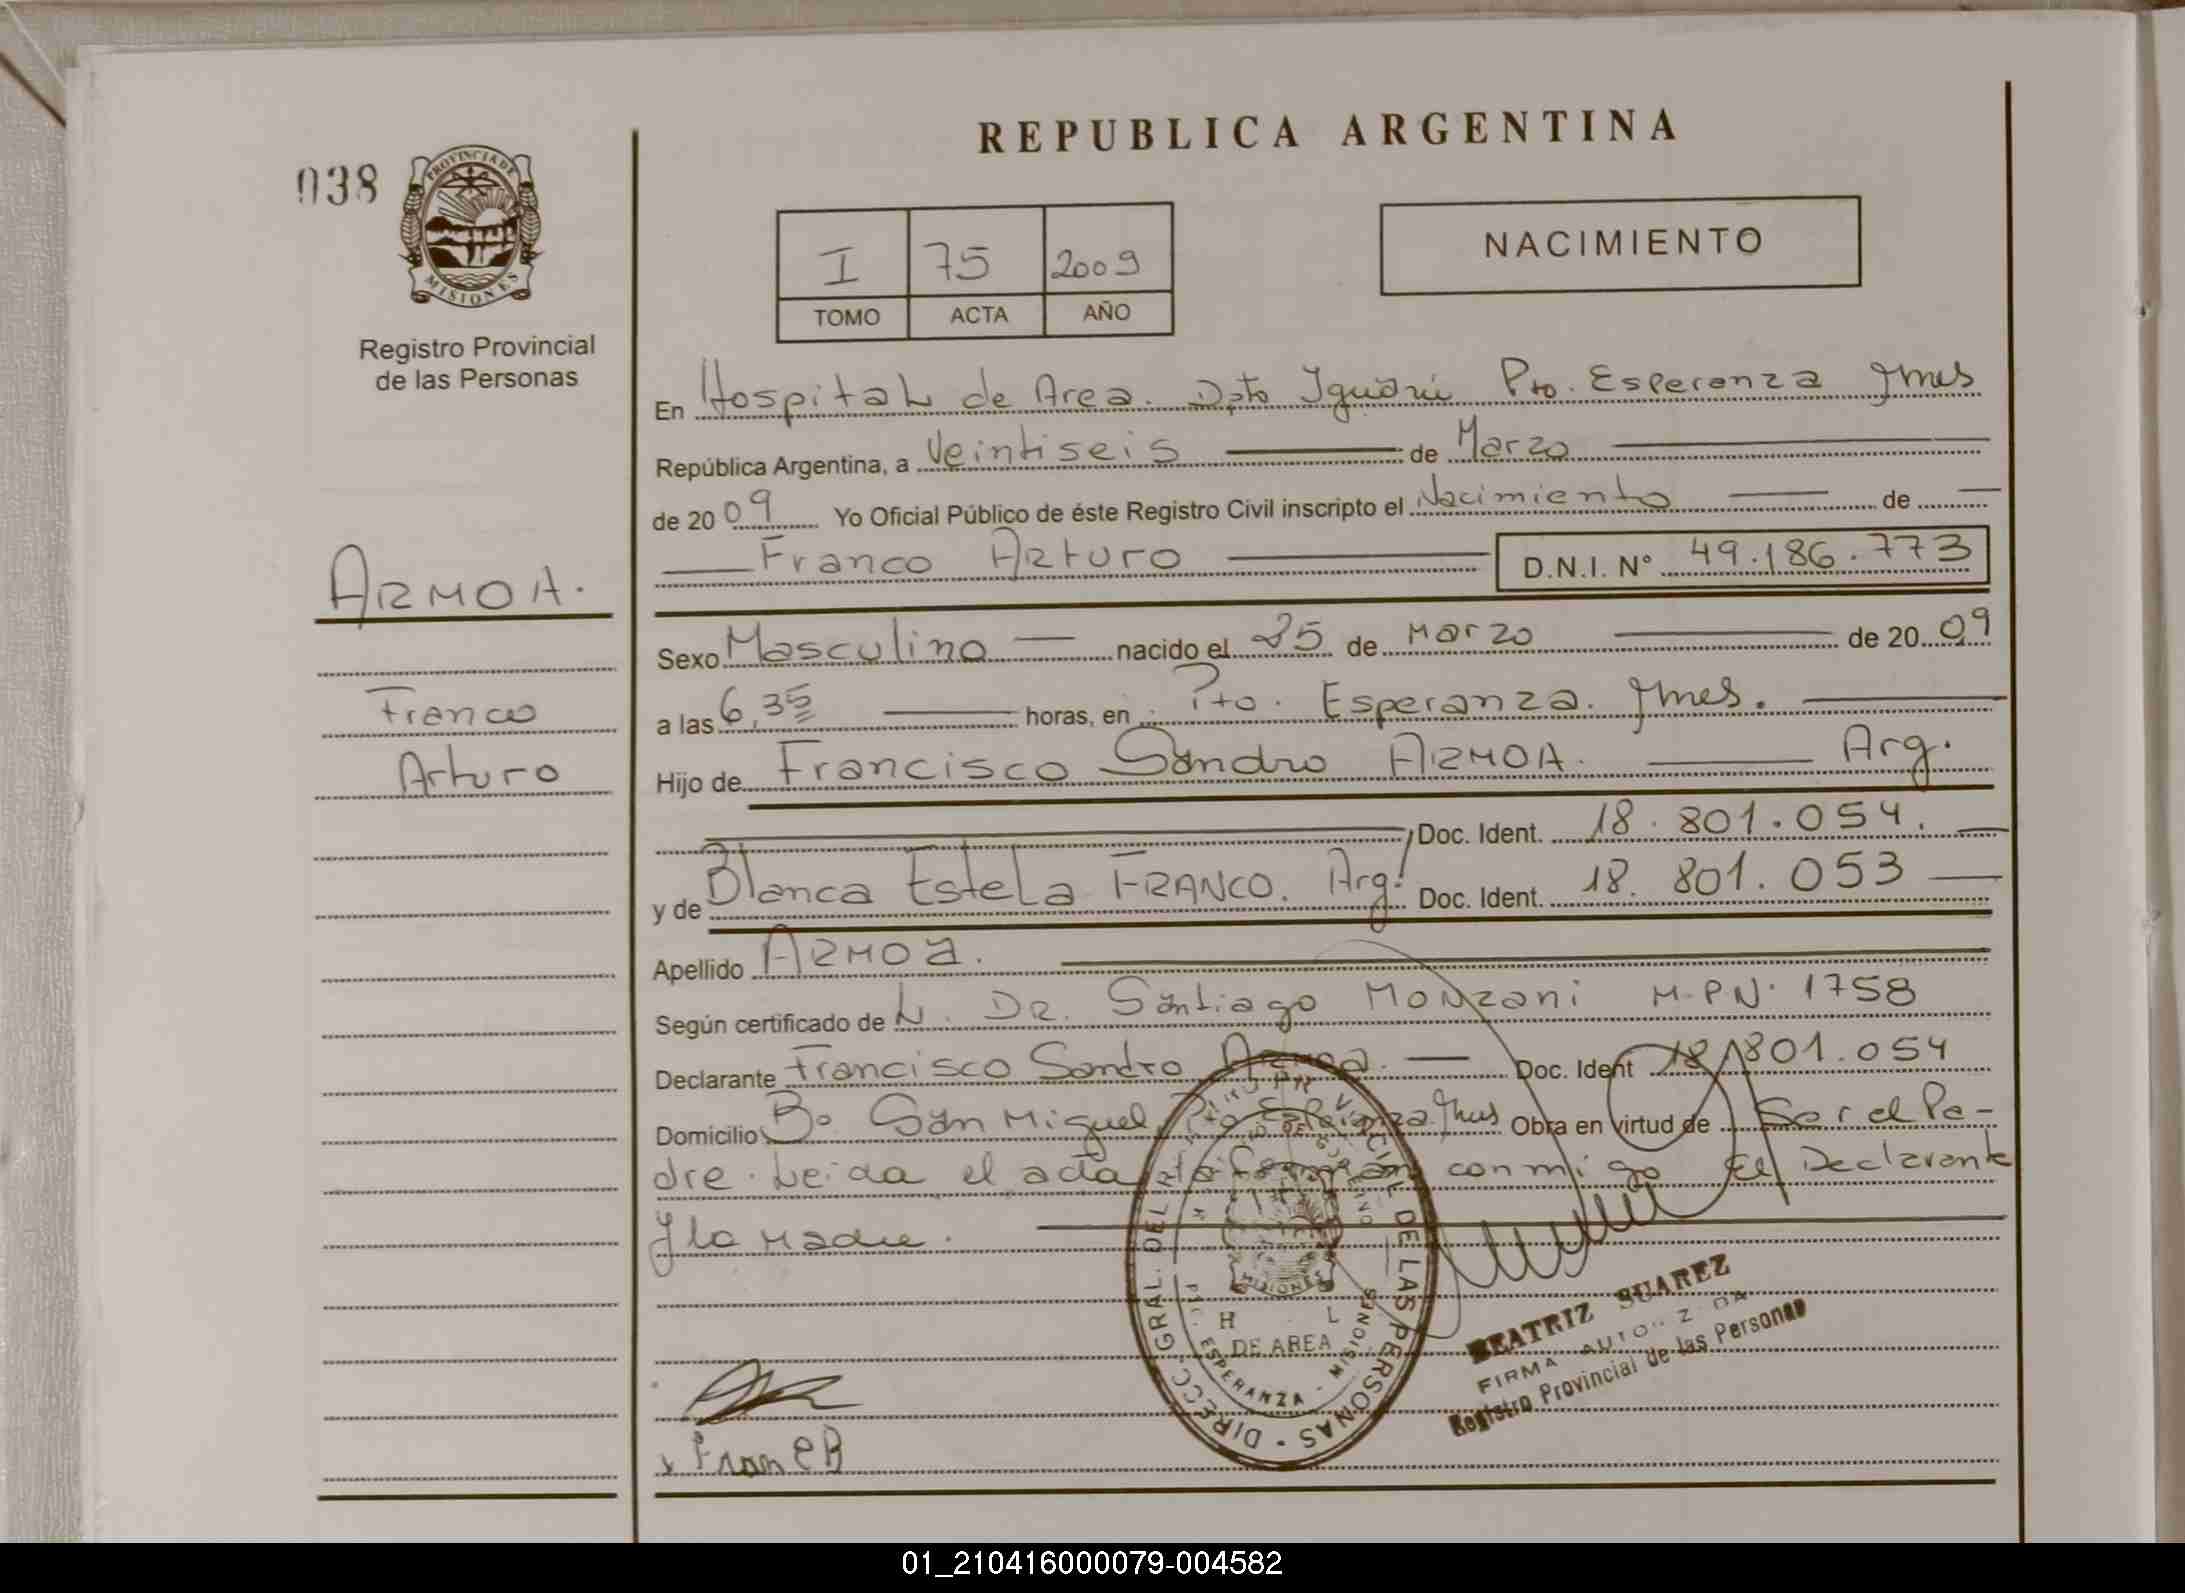 REPUBLICA ARGENTINA
038
PROVINCIA DE
MISIONES
Registro Provincial
de las Personas
I 75 2009
TOMO ACTA AÑO
NACIMIENTO
En Hospital de Area. Dpto Iguazú Pto. Esperanza Mnes
República Argentina, a Veintiseis de Marzo
de 2009 Yo Oficial Público de éste Registro Civil inscripto el Nacimiento de
Franco Arturo D.N.I. Nº 49.186.773
ARMOA.
Franco
Arturo
Sexo Masculino nacido el 25 de Marzo de 2009
a las 6,35 horas, en Pto. Esperanza. Mnes.
Hijo de Francisco Sandro ARMOA. Arg.
Doc. Ident. 18.801.054.
y de Blanca Estela FRANCO. Arg. Doc. Ident. 18.801.053
Apellido ARMOA.
Según certificado de N. DR. Santiago Monzani M.P.N. 1758
Declarante Francisco Sandro Armoa. Doc. Ident 18.801.054
Domicilio Bo San Miguel Pto Esperanza Mnes Obra en virtud de Ser el Pa-
dre. Leida el acta la firman conmigo El Declarante
y la Madre.
DIRECC. GRAL. DEL DE LAS PERSONAS
MISIONES
H L
DE AREA
ESPERANZA - MISIONES
BEATRIZ SUAREZ
FIRMA
Registro Provincial de las Personas
01_210416000079-004582